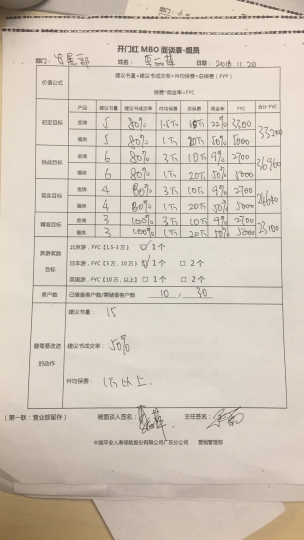 开门红 MBO 面谈表-组员
部门: 发展部 姓名: 日期: 2018.11.20
价值公式
建议书量*建议书成交率*件均保费=总保费(FYP)
保费*佣金率=FYC
产品 建议书量 建议书成交率 件均保费 总保费 佣金率 FYC 合计 FYC
初定目标 金瑞 5 80% 1.5万 22% 3300 33200
福英 5 80% 1万 50%
挑战目标 金瑞 6 80% 3万 10万 4% 2700
福英 6 80% 1万 20万 50% 5000
现实目标 金瑞 4 80% 3万 10万 4% 2700
福英 4 80% 1万 20万 50% 5000
精准目标 金瑞 3 100% 3万 10万 4% 2700
福英 3 100% 1万 20万 50% 5000
旅游奖励目标
北京游,FYC【1.5-3 万】 ☑ 1 个
日本游,FYC【3 万,10 万】 ☑ 1 个 □ 2 个
英国游:FYC【10 万,以上】 □ 1 个 □ 2 个
客户数 已储备客户数/需储备客户数 10 , 30
最需要改进的动作
建议书量: 15
建议书成交率: 50%
件均保费: 1万以上.
(第一联:营业部留存) 被面谈人签名: 主任签名:
中国平安人寿保险股份有限公司广东分公司 营销管理部